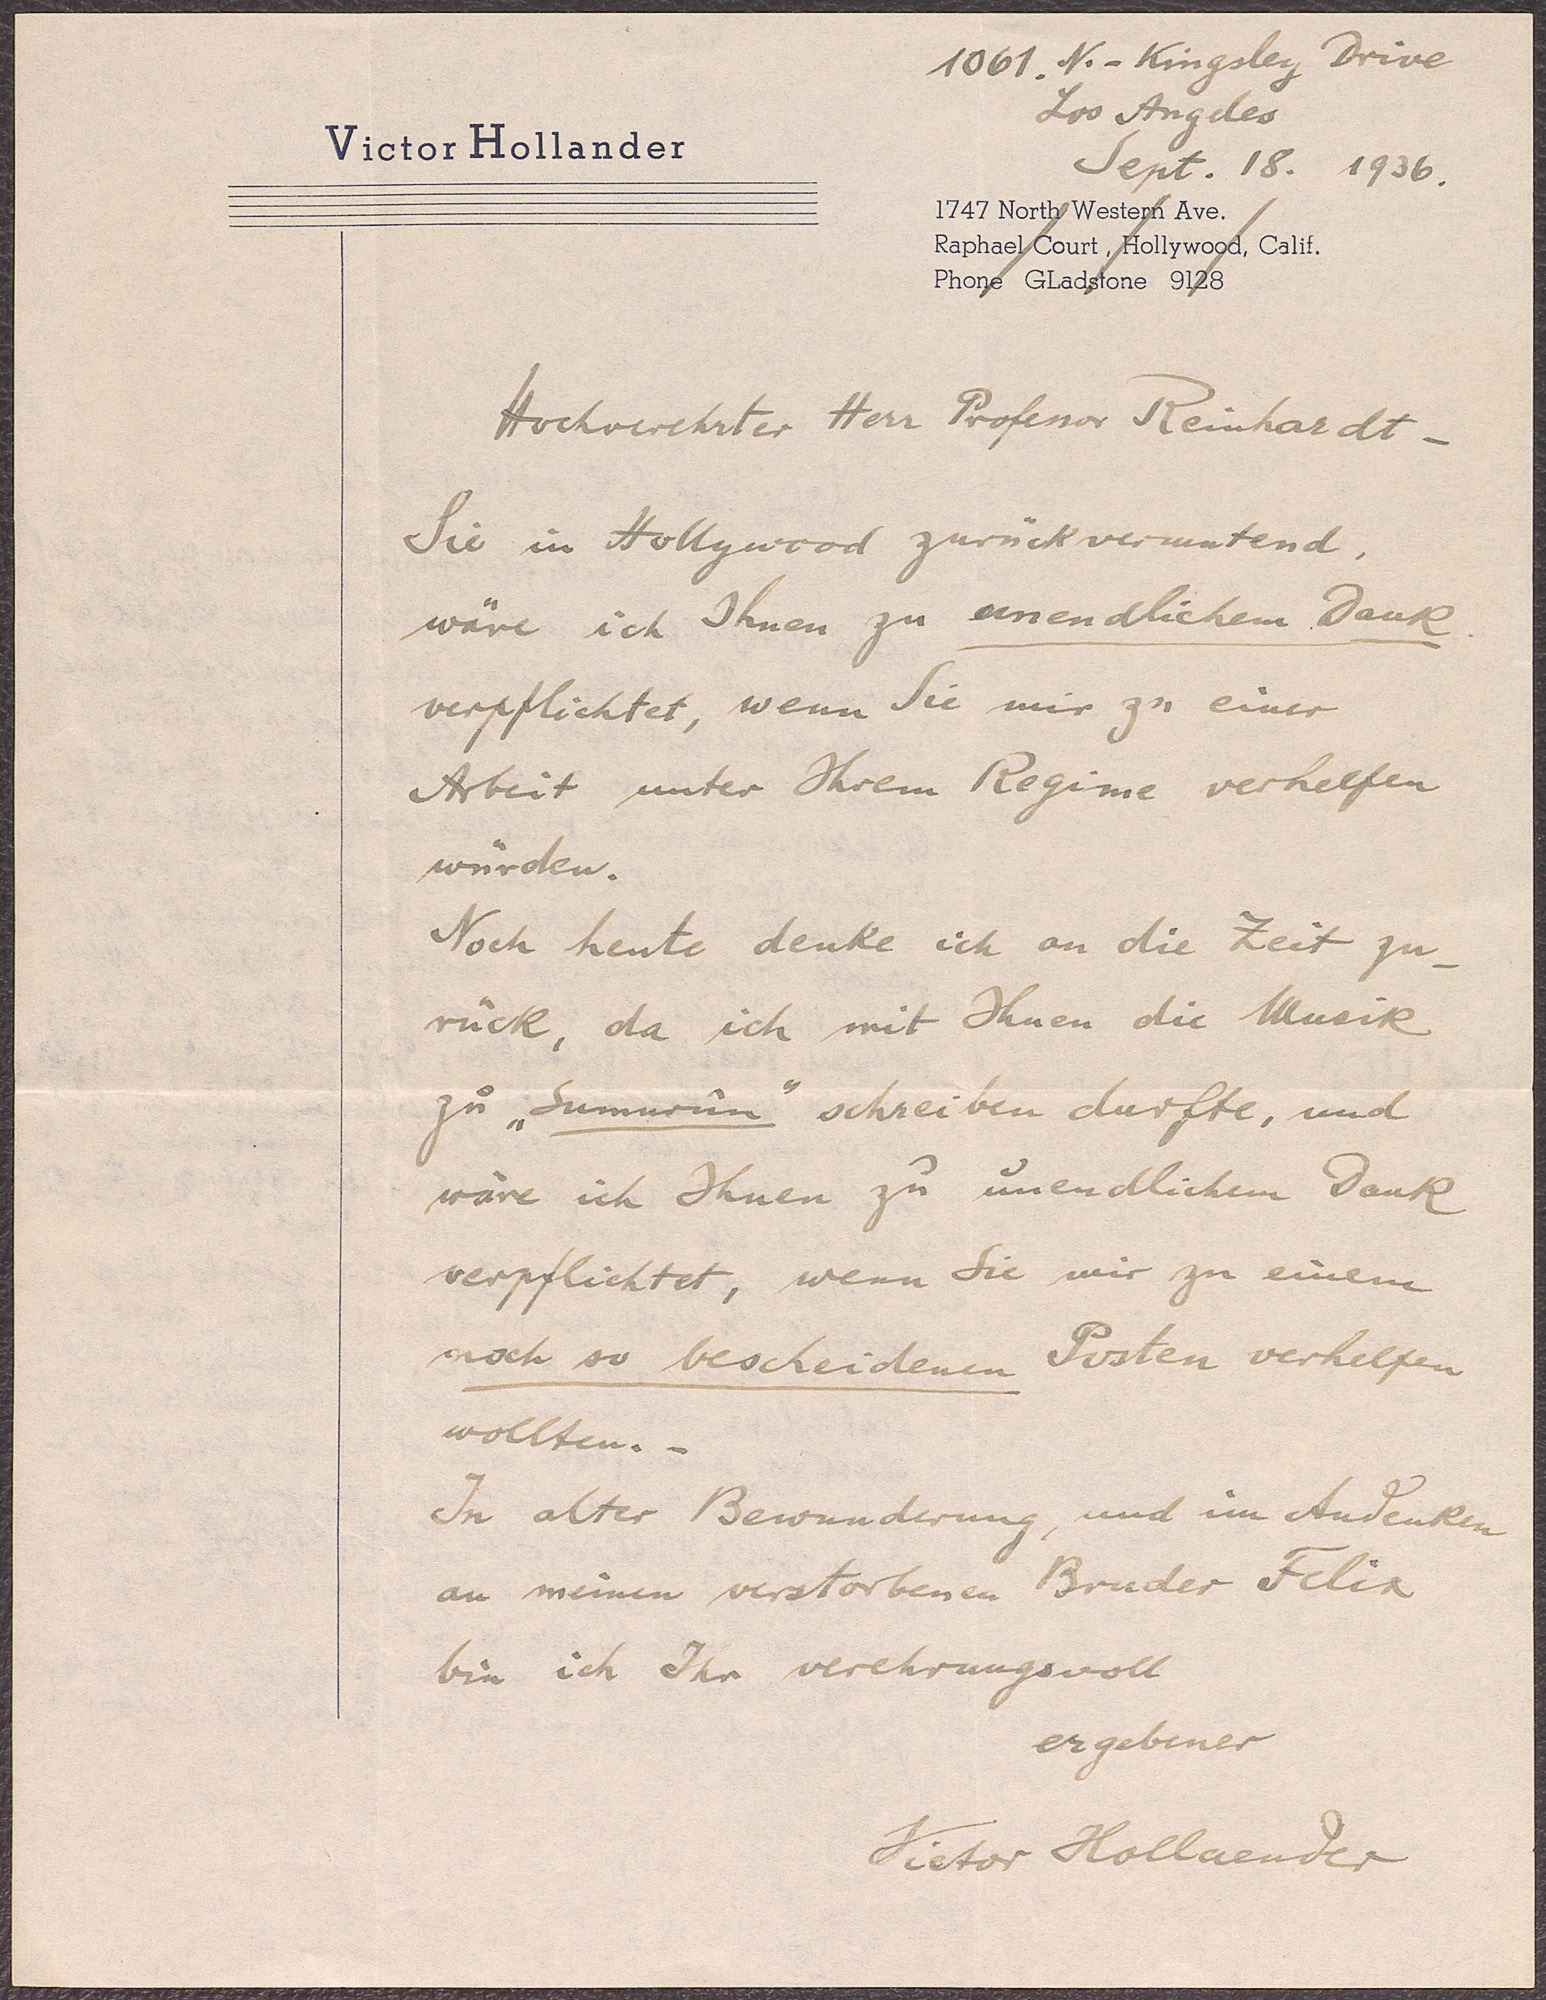 1061. N. - Kingsley Drive
Los Angeles
Sept. 18. 1936.
Victor Hollander
1747 North Western Ave.
Raphael Court, Hollywood, Calif.
Phone GLadstone 9128
Hochverehrter Herr Professor Reinhardt -
Sie in Hollywood zurückvermutend,
wäre ich Ihnen zu unendlichem Dank
verpflichtet, wenn Sie mir zu einer
Arbeit unter Ihrem Regime verhelfen
würden.
Noch heute denke ich an die Zeit zu-
rück, da ich mit Ihnen die Musik
zu „Sumurûn" schreiben durfte, und
wäre ich Ihnen zu unendlichem Dank
verpflichtet, wenn Sie mir zu einem
noch so bescheidenen Posten verhelfen
wollten. -
In alter Bewunderung, und im Andenken
an meinen verstorbenen Bruder Felix
bin ich Ihr verehrungsvoll
ergebener
Victor Hollaender